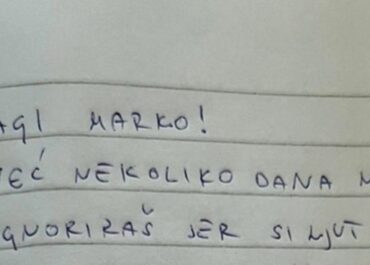 AGI MARKO!
EĆ NEKOLIKO DANA
GNORIRAŠ JER SI LJUT